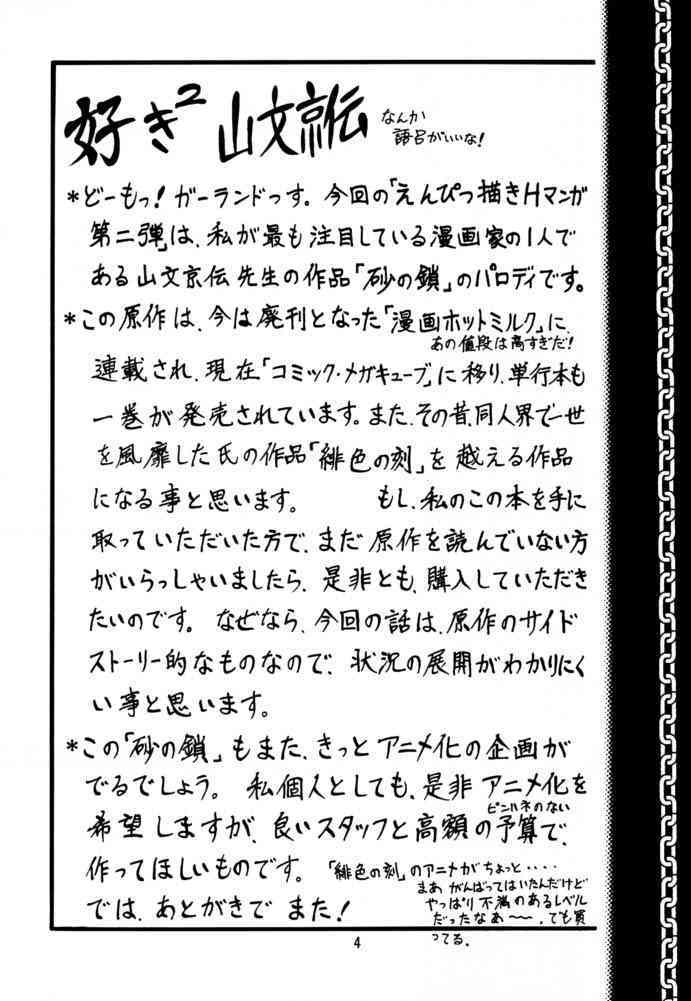 好き² 山文京伝 なんか
語呂がいいな!
*どーもっ!ガーランドっす。今回の「えんぴつ描きHマンガ
第二弾」は、私が最も注目している漫画家の1人で
ある山文京伝先生の作品「砂の鎖」のパロディです。
*この原作は、今は廃刊となった「漫画ホットミルク」に、
あの値段は高すぎだ!
連載され、現在「コミック・メガキューブ」に移り、単行本も
一巻が発売されています。また、その昔、同人界で一世
を風靡した氏の作品「緋色の刻」を越える作品
になる事と思います。 もし、私のこの本を手に
取っていただいた方で、まだ原作を読んでいない方
がいらっしゃいましたら、是非とも、購入していただき
たいのです。なぜなら、今回の話は、原作のサイド
ストーリー的なものなので、状況の展開がわかりにく
い事と思います。
*この「砂の鎖」もまた、きっとアニメ化の企画が
でるでしょう。私個人としても、是非アニメ化を
ピンハネのない
希望しますが、良いスタッフと高額の予算で、
作ってほしいものです。「緋色の刻」のアニメがちょっと・・・・
まあがんばってはいたんだけど
やっぱり不満のあるレベル
だったなあ〜〜。でも買
ってる。
では、あとがきでまた!
4